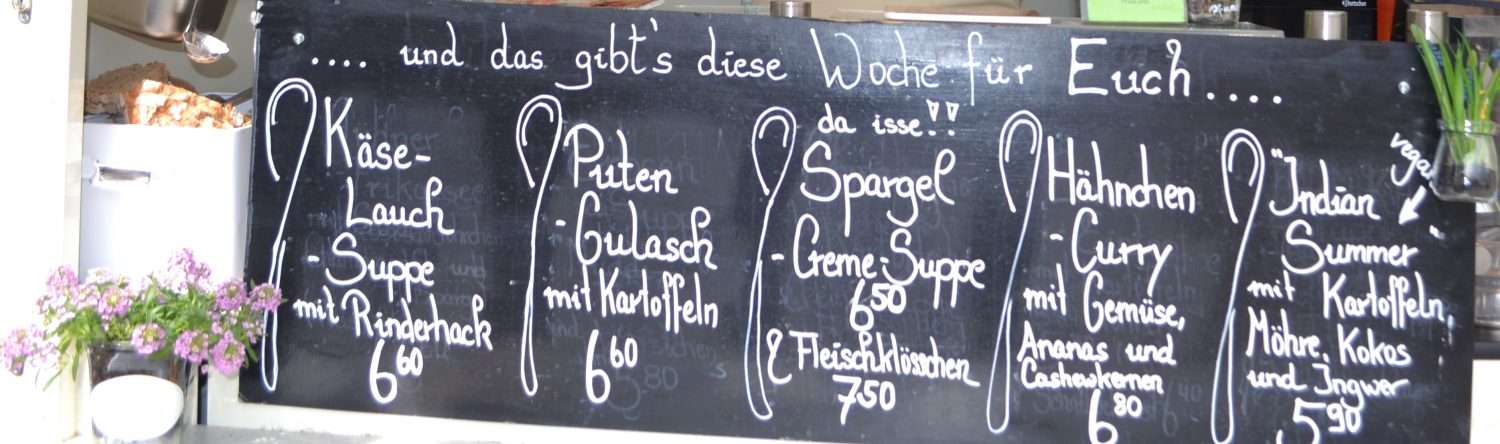 .... und das gibt's diese Woche für Euch....
Käse-
Lauch
-Suppe
mit Rinderhack
6 60
Puten
-Gulasch
mit Kartoffeln
6 60
da isse!!
Spargel
-Creme-Suppe
6 50
& Fleischklösschen
7 50
Hähnchen
-Curry
mit Gemüse,
Ananas und
Cashewkernen
6 80
vegan
"Indian
Summer"
mit Kartoffeln,
Möhre, Kokos
und Ingwer
5 90